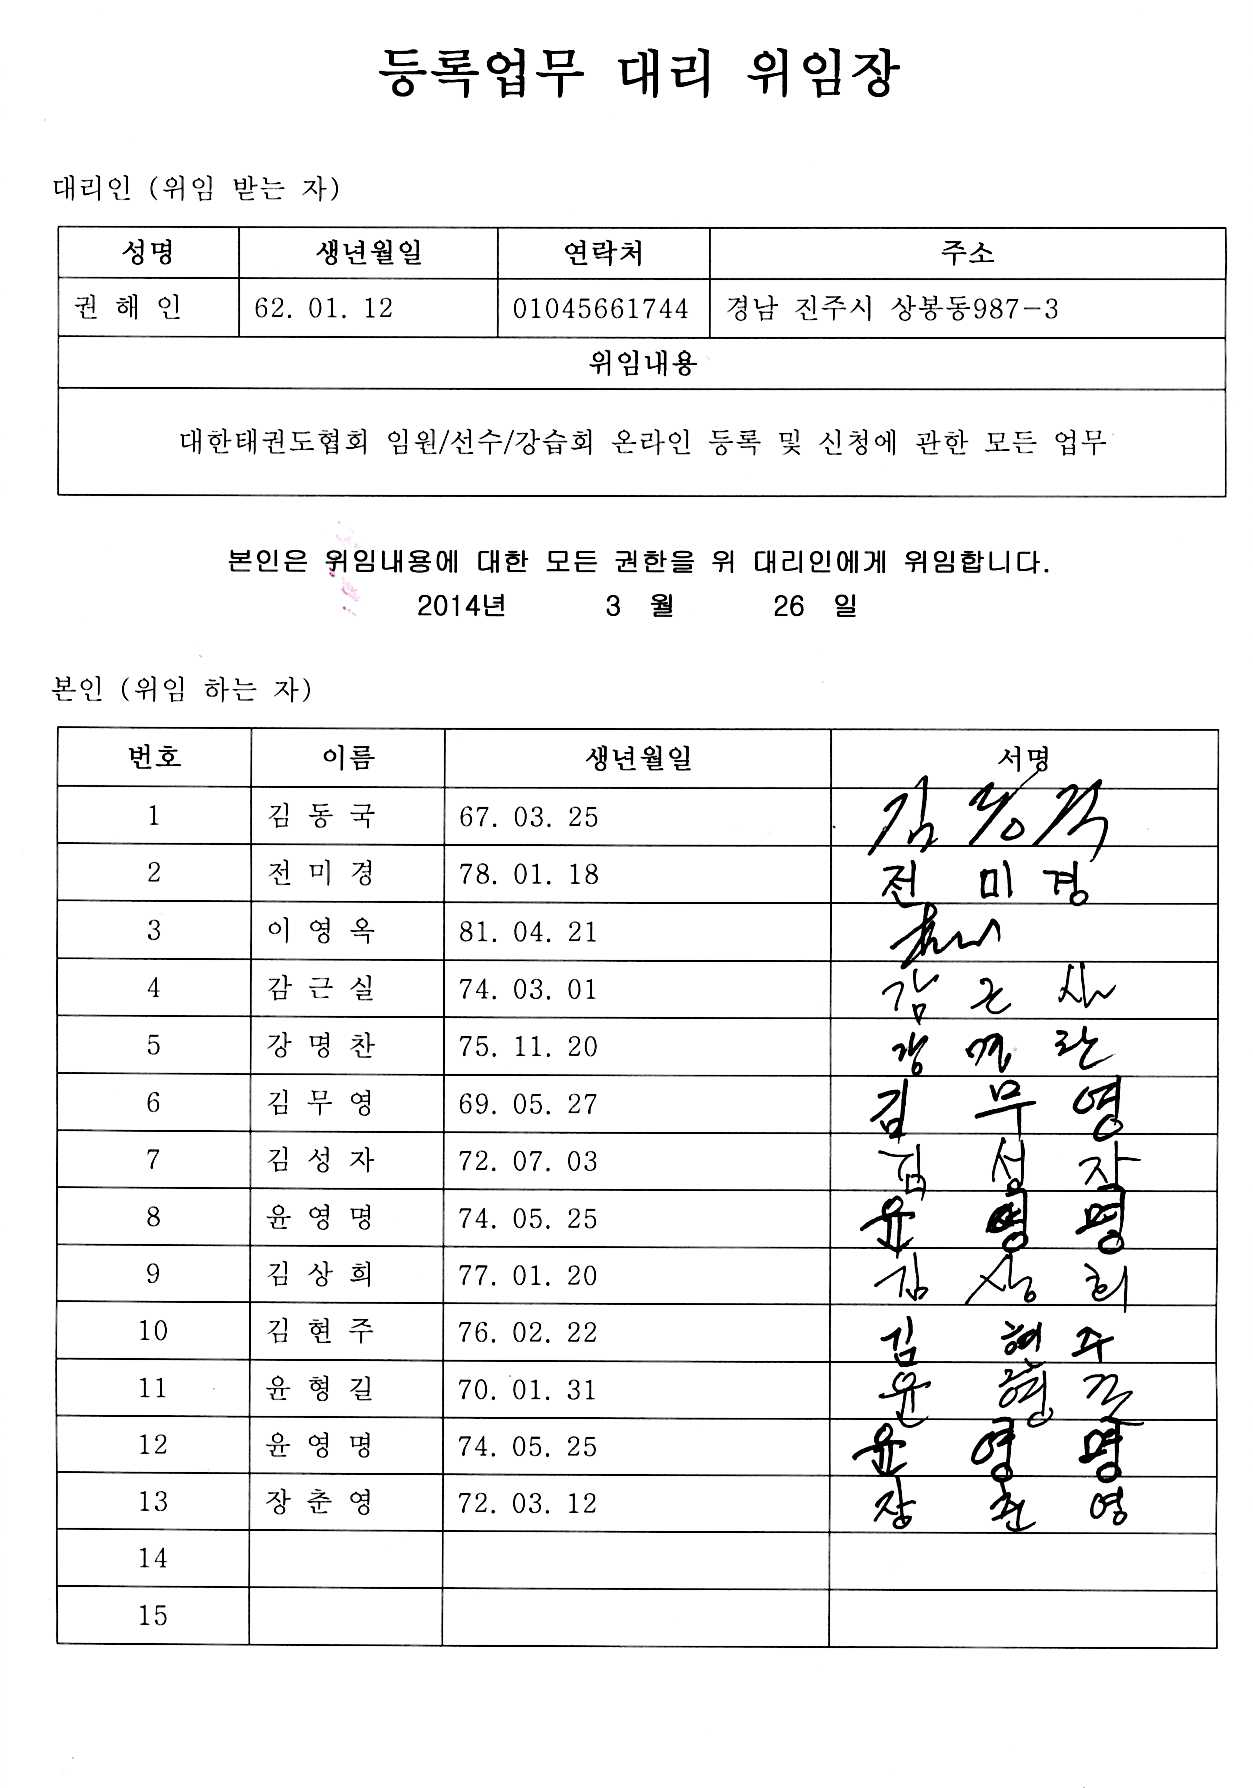 등록업무 대리 위임장
대리인 (위임 받는 자)
성명 생년월일 연락처 주소
권 해 인 62. 01. 12 01045661744 경남 진주시 상봉동987-3
위임내용
대한태권도협회 임원/선수/강습회 온라인 등록 및 신청에 관한 모든 업무
본인은 위임내용에 대한 모든 권한을 위 대리인에게 위임합니다.
2014년 3 월 26 일
본인 (위임 하는 자)
번호 이름 생년월일 서명
1 김 동 국 67. 03. 25
2 전 미 경 78. 01. 18 전 미 경
3 이 영 옥 81. 04. 21
4 감 근 실 74. 03. 01
5 강 명 찬 75. 11. 20
6 김 무 영 69. 05. 27 김 무 영
7 김 성 자 72. 07. 03 김 성 자
8 윤 영 명 74. 05. 25 윤 영 명
9 김 상 희 77. 01. 20 김 상 희
10 김 현 주 76. 02. 22 김 현 주
11 윤 형 길 70. 01. 31 윤 형 길
12 윤 영 명 74. 05. 25 윤 영 명
13 장 춘 영 72. 03. 12 장 춘 영
14
15